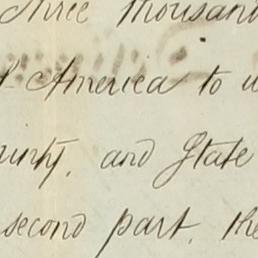 Three thousand
America to
and State
second part, the